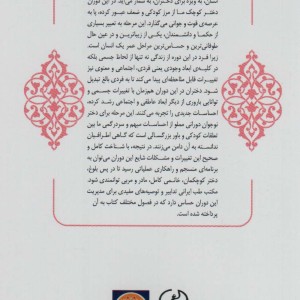 انسان به ویژه برای دختران، به شمار می‌آید. در این دوران
دختر کوچک ما از مرز کودکی و ضعف عبور کرده، پا به
عرصه‌ی قوت و جوانی می‌گذارد. این مرحله به تعبیر بسیاری
از حکما و دانشمندان، یکی از زیباترین و در عین حال
طوفانی‌ترین و حساس‌ترین مراحل عمر یک انسان است.
زیرا فرد در این دوره از زندگی نه تنها از لحاظ جسمی بلکه
در کلیه‌ی ابعاد وجودی یعنی فردی، اجتماعی و معنوی نیز
تغییرات قابل ملاحظه‌ای پیدا می‌کند تا به فردی بالغ تبدیل
شود. دختران در این دوران هم‌زمان با تغییرات جسمی و
توانایی باروری از دیگر ابعاد عاطفی و اجتماعی رشد کرده،
احساسات جدیدی را تجربه می‌کنند. این مرحله برای دختر
نوجوان دورانی مملو از احساسات مبهم و سردرگمی ما بین
تعلقات کودکی و باور بزرگسالی است که گاهی اطرافیان
ندانسته به آن دامن می‌زنند. در نتیجه، با شناخت کامل و
صحیح این تغییرات و مشکلات شایع این دوران می‌توان به
برنامه‌ای منسجم و راهکاری عملیاتی رسید تا در پس بلوغ،
دختر کوچکمان، خانمی کامل، مادر و مربی توانمندی شود.
مکتب طب ایرانی تدابیر و توصیه‌های مفیدی برای مدیریت
این دوران حساس دارد که در فصول مختلف کتاب به آن
پرداخته شده است.